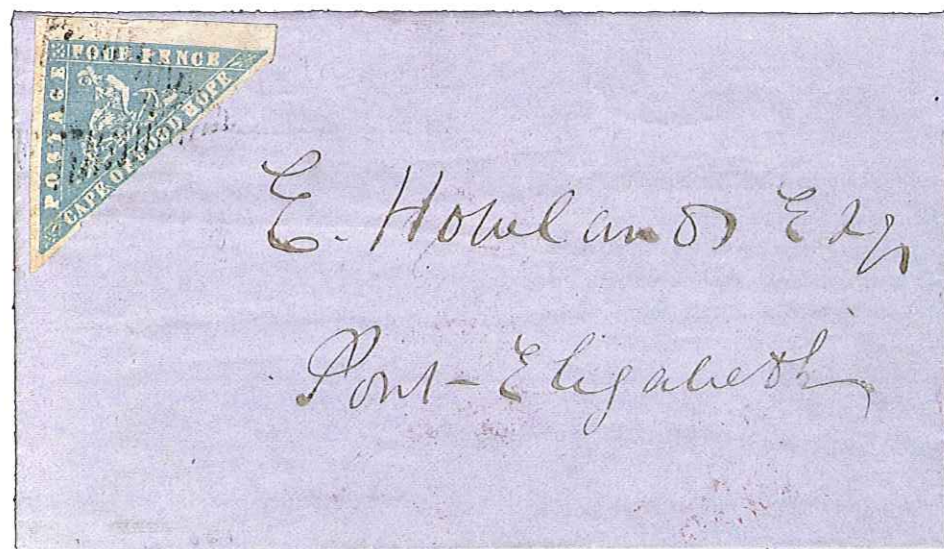 FOUR PENCE
POSTAGE
CAPE OF GOOD HOPE
E. Howeland Esq
Port-Elizabeth